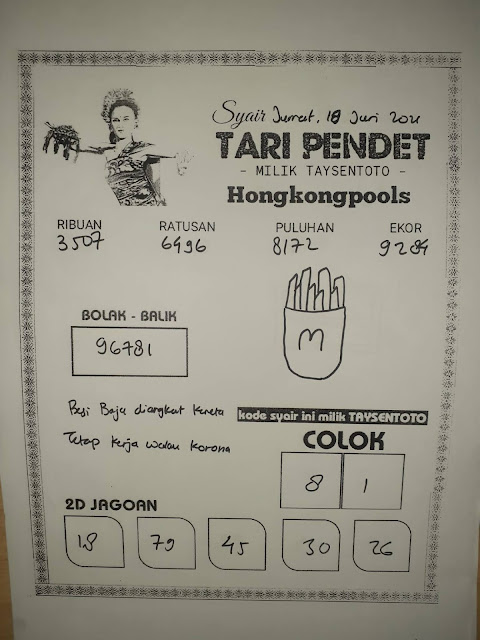 Syair Jumat, 18 Juni 2021
TARI PENDET
- MILIK TAYSENTOTO -
Hongkongpools
RIBUAN RATUSAN PULUHAN EKOR
3507 6496 8172 9284
BOLAK - BALIK
96781
M
Besi Baja diangkut Kereta
Tetap Kerja walau Korona
kode syair ini milik TAYSENTOTO
COLOK
8 1
2D JAGOAN
18 79 45 30 26